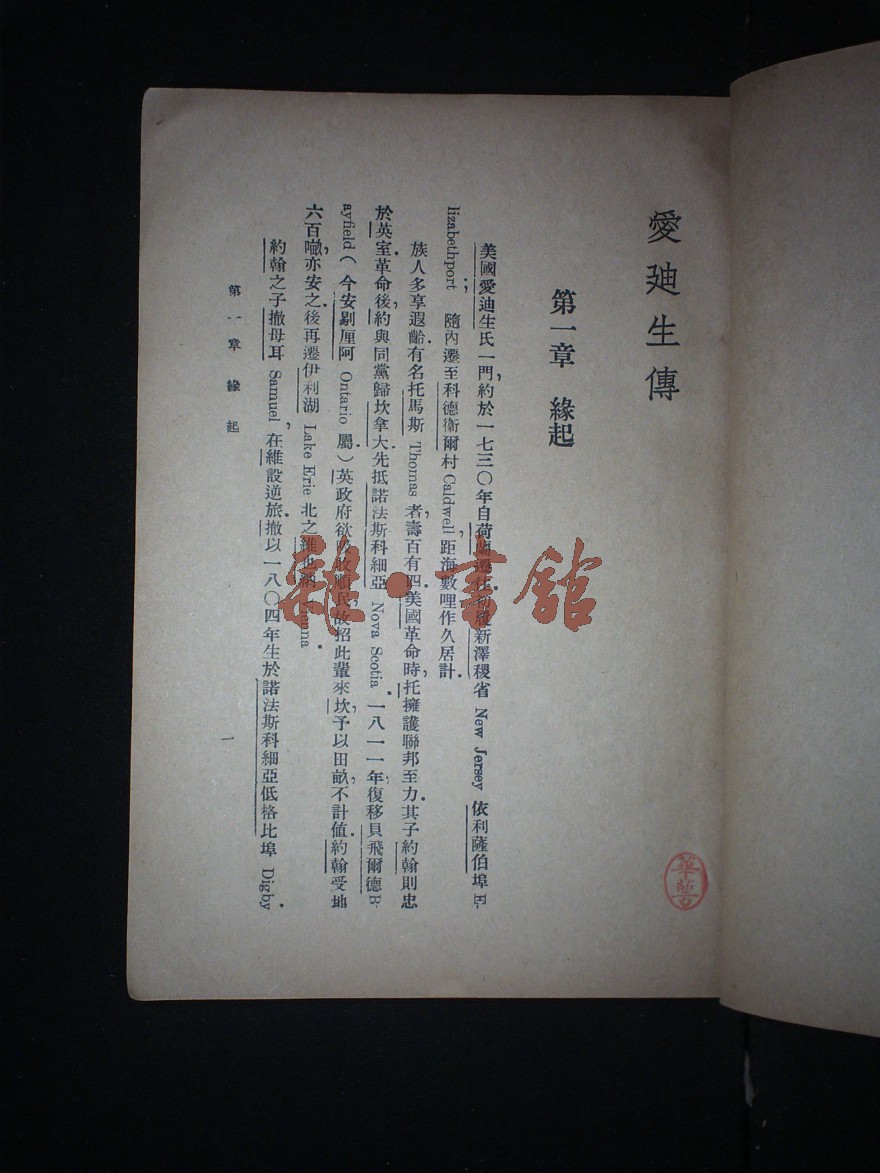 愛廸生傳
第一章　緣起
美國愛迪生氏一門，約於一七三〇年自荷蘭遷 新澤稷省 New Jersey 依利薩伯埠 E-
lizabethport；隨內遷至科德衛爾村 Caldwell，距海數哩，作久居計．
族人多享遐齡．有名托馬斯 Thomas 者，壽百有四．美國革命時，托擁護聯邦至力．其子約翰則忠
於英室．革命後，約與同黨歸坎拿大．先抵諾法斯科細亞 Nova Scotia．一八一一年，復移貝飛爾德 B-
ayfield（今安剔厘阿 Ontario 屬．）英政府欲吸收順民，故招此輩來坎，予以田畝，不計值．約翰受地
六百噉，亦安之．後再遷伊利湖 Lake Erie 北之維也納 Vienna．
約翰之子撒母耳 Samuel，在維設逆旅．撒以一八〇四年生於諾法斯科細亞低格比埠 Digby．
第一章　緣起
一
雜·書館
華